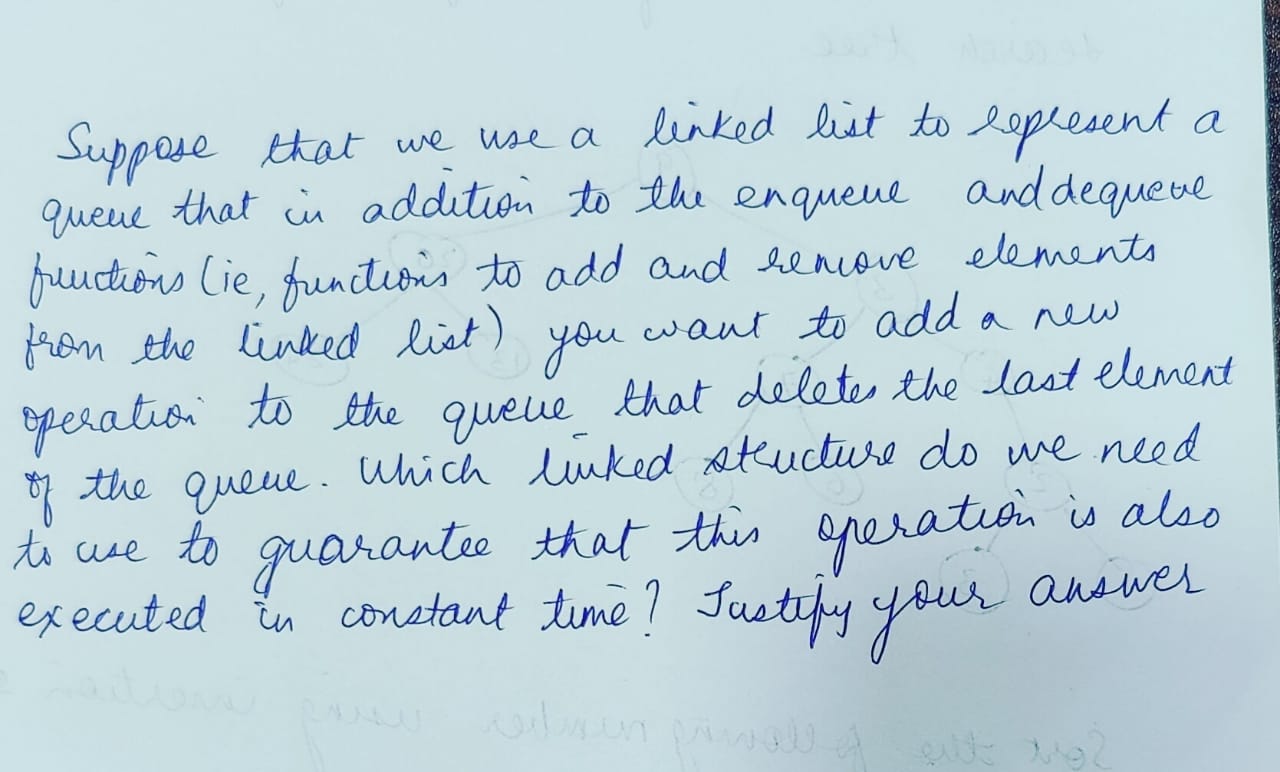 Suppose that we use a linked list to represent a
queue that in addition to the enqueue and dequeue
functions (ie, functions to add and remove elements
from the linked list) you want to add a new
operation to the queue that deletes the last element
of the queue. Which linked structure do we need
to use to guarantee that this operation is also
executed in constant time? Justify your answer